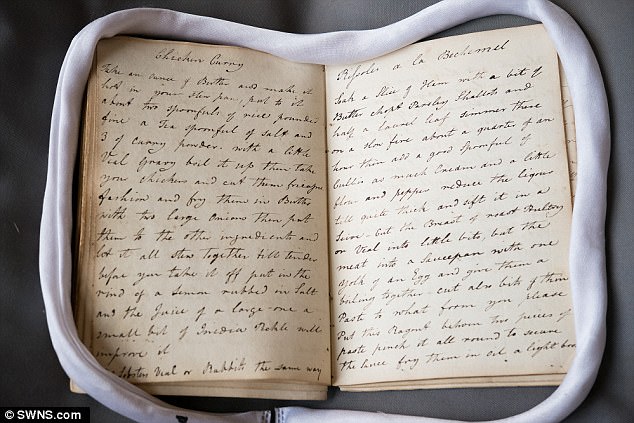 Chicken Curry
Take an ounce of Butter and make it
hot in your stew pan, put to it
about two spoonfuls of rice pounded
fine a Tea spoonful of salt and
3 of curry powder. with a little
Veal Gravy boil it up then take
your chickens and cut them fricasee
fashion and fry them in Butter
with two large Onions then put
them to the other ingredients and
let it all stew together till tender
before you take it off put in the
rind of a lemon rubbed in salt
and the juice of a large one a
small bit of India Pickle will
improve it
Lobsters Veal or Rabbits the same way
Rissoles a la Bechemel
Soak a Slice of Ham with a bit of
Butter chopt Parsley Shallots and
half a Laurel leaf simmer these
on a slow fire about a quarter of an
hour then add a good spoonful of
Cullis as much Cream and a little
flour and pepper reduce the liquor
till quite thick and sift it in a
Sieve cut the Breast of roast Poultry
or Veal into little bits, put the
meat into a Saucepan with one
yolk of an Egg and give them a
boiling together cut also bits of thin
Paste to what form you please
Put this Ragout between two pieces of
paste pinch it all round to secure
the sauce fry them in oil a light
© SWNS.com